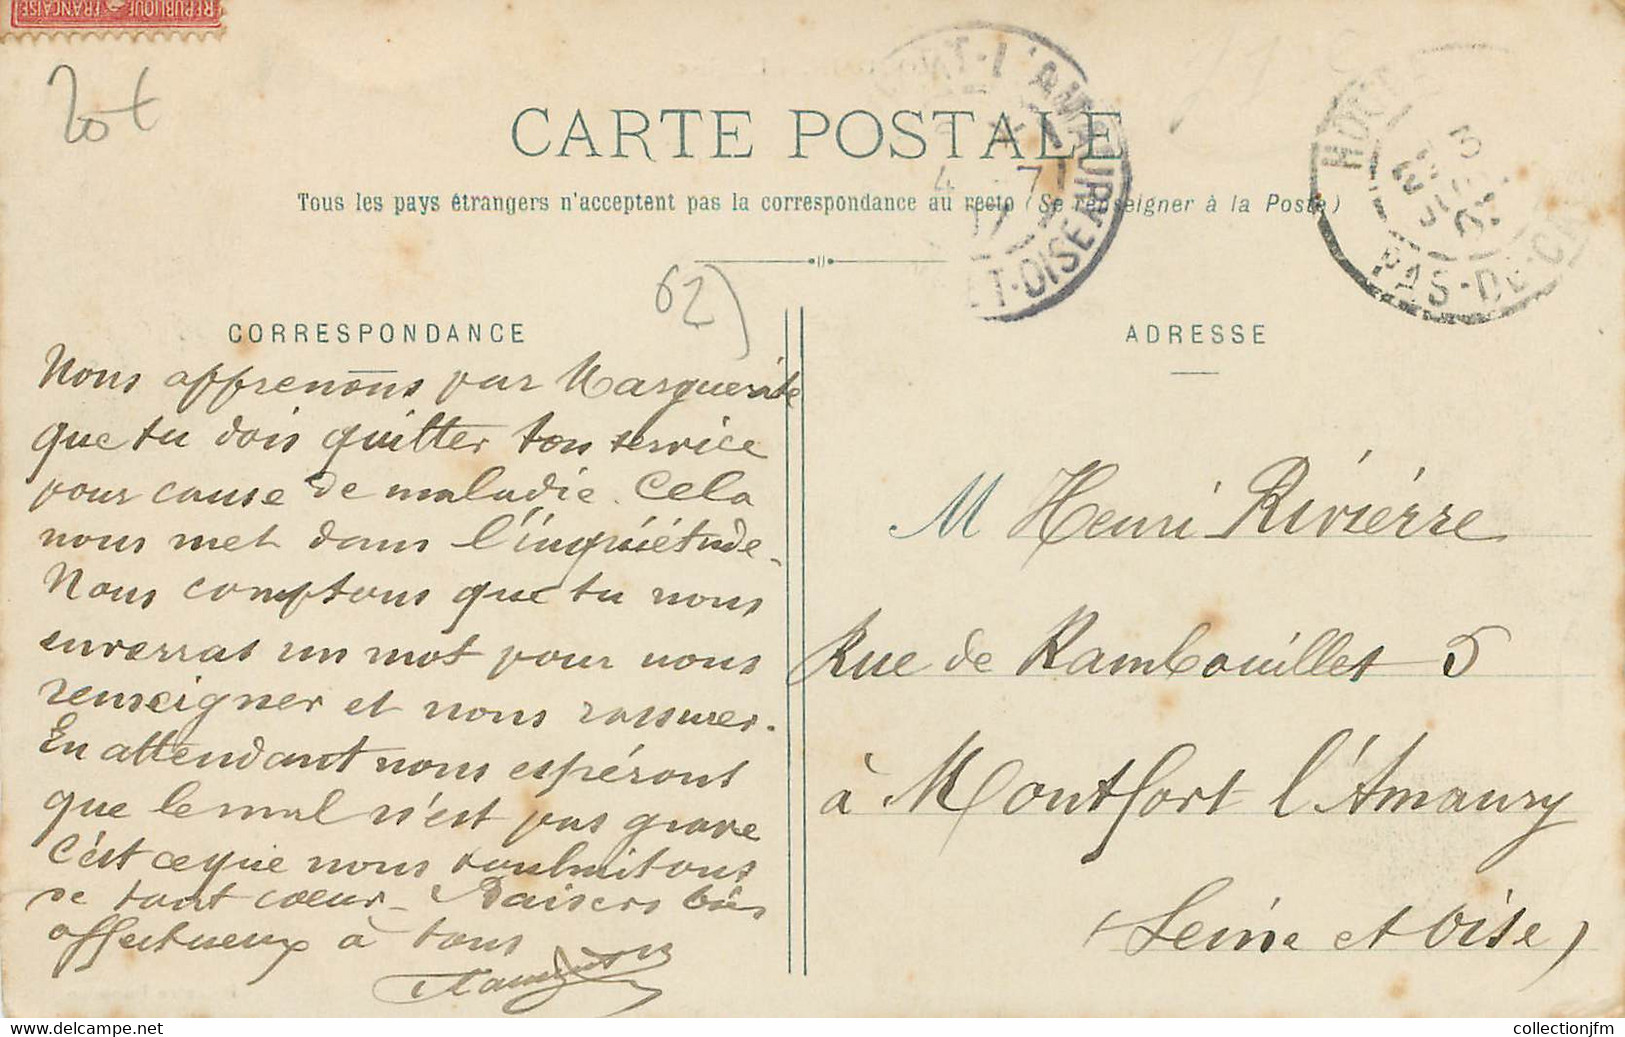 RÉPUBLIQUE FRANÇAISE
20t
CARTE POSTALE
Tous les pays étrangers n'acceptent pas la correspondance au recto (Se renseigner à la Poste)
T-L'AMAURY
4 7
ET-OISE
PAS-DE-CA
62)
CORRESPONDANCE
Nous apprenons par Marguerite
que tu dois quitter ton service
pour cause de maladie. Cela
nous met dans l'inquiétude.
Nous comptons que tu nous
enverras un mot pour nous
renseigner et nous rassurer.
En attendant nous espéront
que le mal n'est pas grave
C'est ce que nous souhaitons
de tout cœur. Baisers bien
affectueux à tous
ADRESSE
M Henri Rivièrre
Rue de Rambouillet 5
à Montfort l'Amaury
(Seine et Oise)
collectionjfm